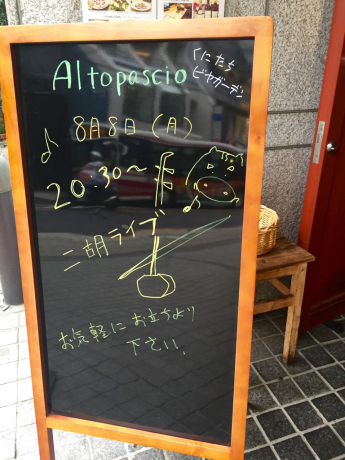 Altopascio
くにたち
ビヤガーデン
8月8日(月)
20:30〜
二胡ライブ
お気軽にお立ちより
下さい。